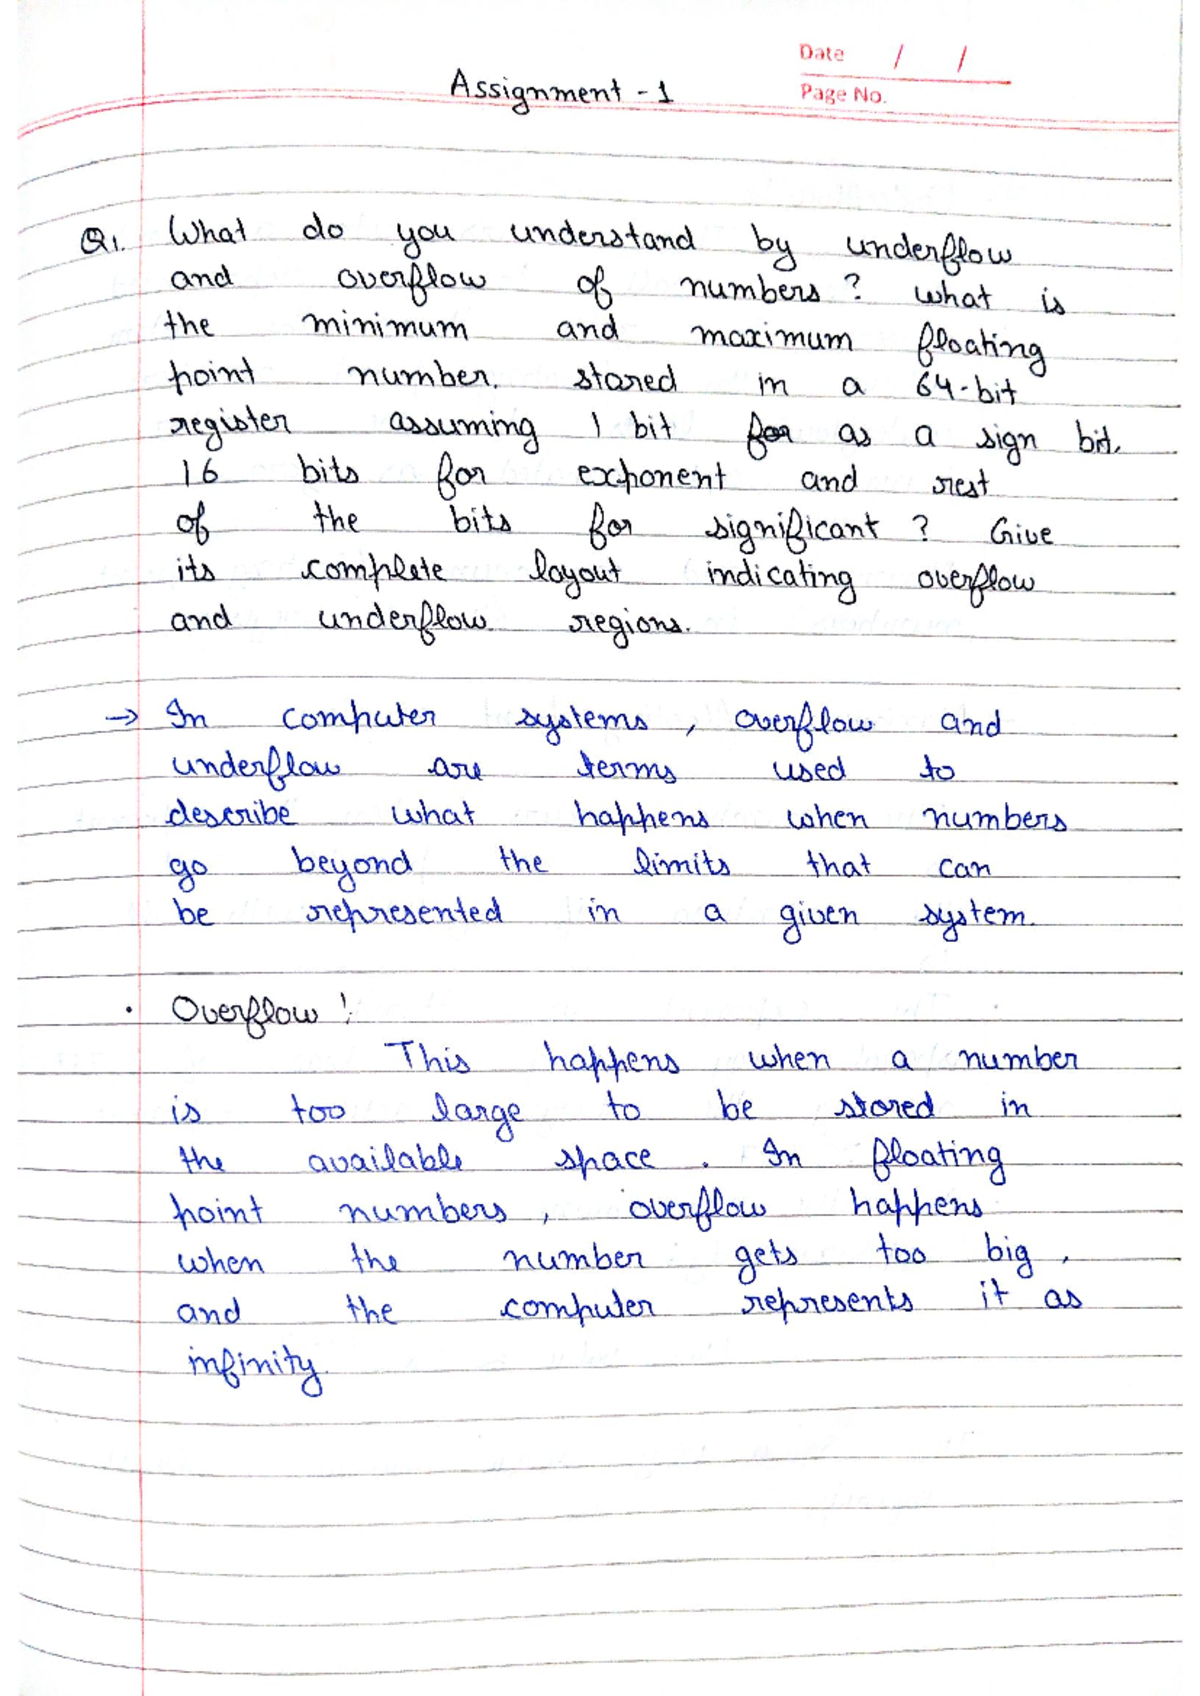 Date / /
Assignment - 1
Page No.
Q1. What do you understand by underflow
and overflow of numbers ? what is
the minimum and maximum floating
point number. stored in a 64-bit
register assuming 1 bit for as a sign bit.
16 bits for exponent and rest
of the bits for significant ? Give
its complete layout indicating overflow
and underflow regions.
→ In computer systems, overflow and
underflow are terms used to
describe what happens when numbers
go beyond the limits that can
be represented in a given system.
• Overflow :
This happens when a number
is too large to be stored in
the available space. In floating
point numbers, overflow happens
when the number gets too big,
and the computer represents it as
infinity.